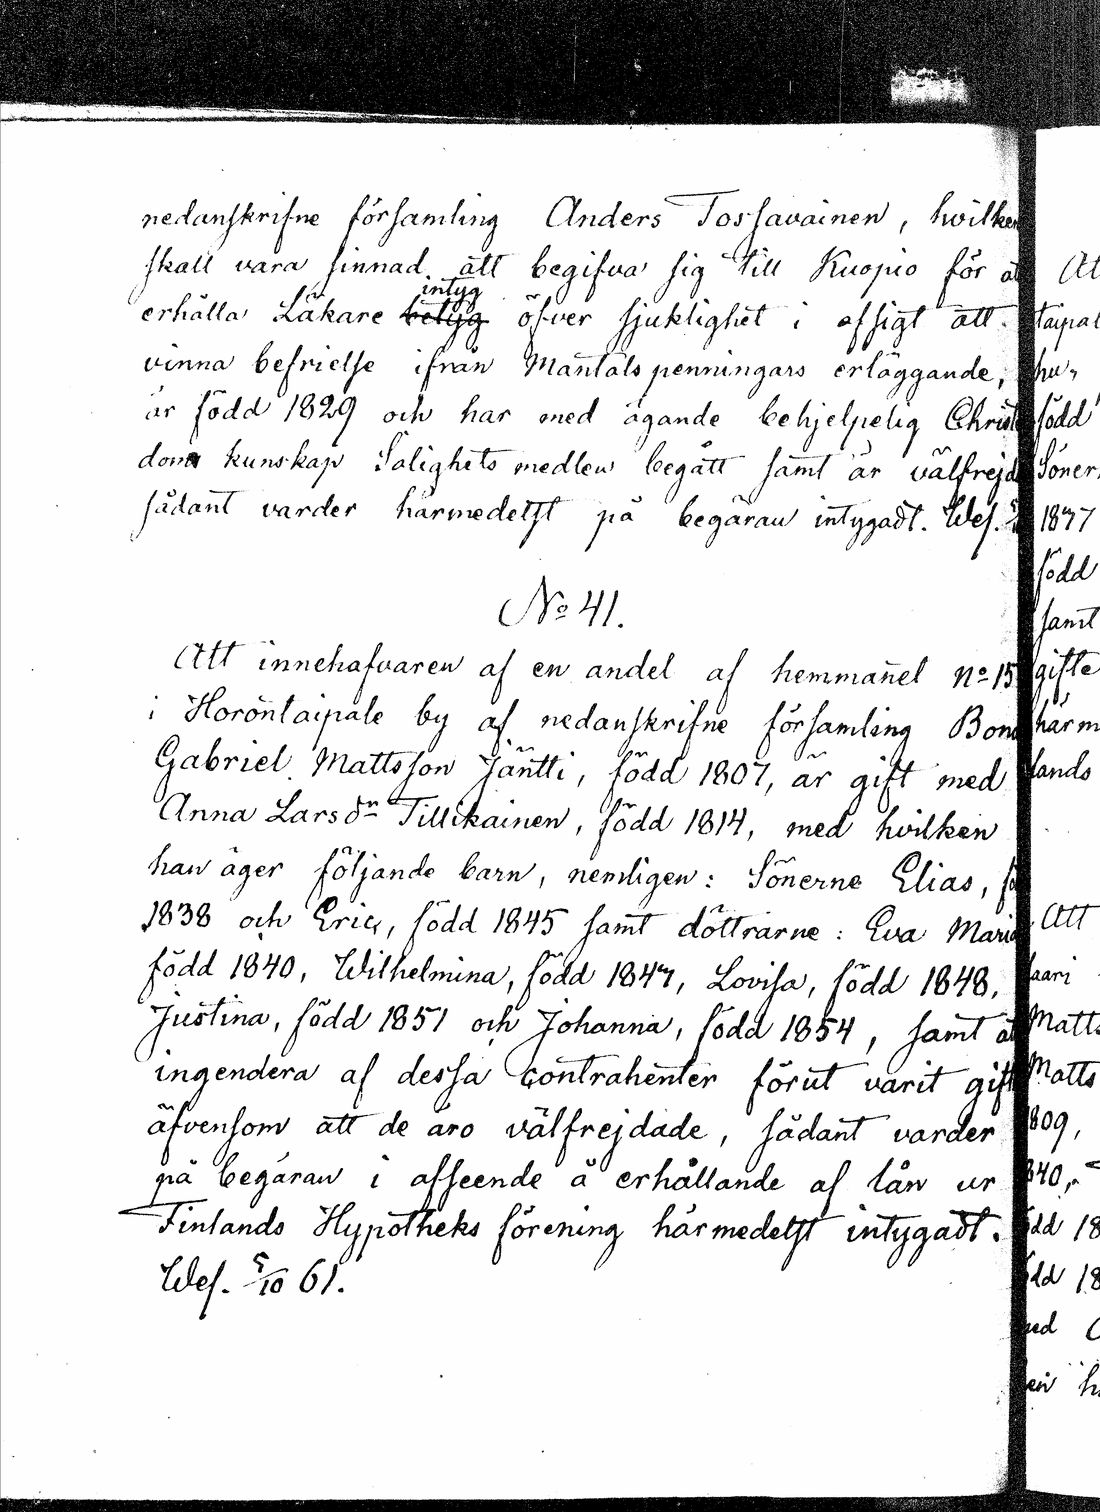 nedanskrifne församling Anders Tossavainen, hvilken
skall vara sinnad att begifva sig till Kuopio för at
erhålla Läkare betyg intyg öfver sjuklighet i afsigt att
vinna befrielse ifrån Mantalspenningars erläggande,
är född 1829 och har med ägande behjelpelig Christ
doms kunskap Salighets medlen begått samt är välfrejd
sådant varder härmedelst på begäran intygadt. Wes.
No 41.
Att innehafvaren af en andel af hemmanet No 15
i Horontaipale by af nedanskrifne församling Bond
Gabriel Mattsson Jäntti, född 1807, är gift med
Anna Larsdr Tillikainen, född 1814, med hvilken
han äger följande barn, nemligen: Sönerne Elias, fö
1838 och Eric, född 1845 samt döttrarne: Eva Maria
född 1840, Wilhelmina, född 1847, Lovisa, född 1848,
Justina, född 1851 och Johanna, född 1854, samt at
ingendera af dessa contrahenter förut varit gift
äfvensom att de äro välfrejdade, sådant varder
på begäran i afseende å erhållande af lån ur
Finlands Hypotheks förening härmedelst intygadt.
Wes. 5/10 61.
At
taipal
hu,
född
Söner
1877
född
samt
gifte
härm
lands
Att
aari
Matts
Matts
809,
840,
dd 18
dd 18
ned